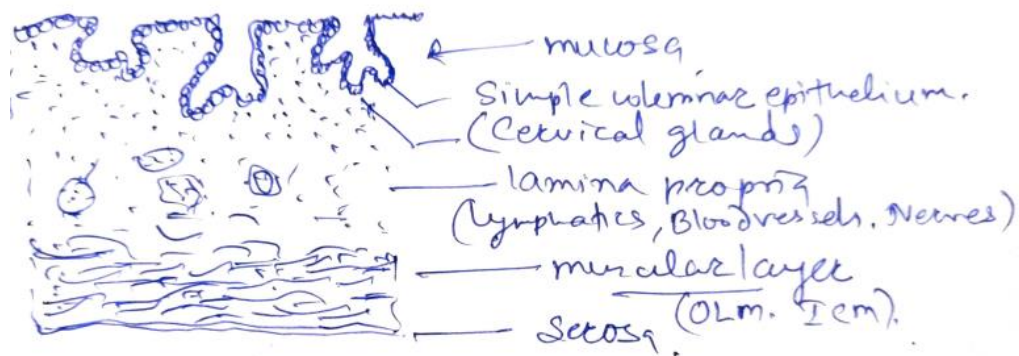 mucosa
Simple columnar epithelium.
(Cervical glands)
lamina propria
(lymphatics, Blood vessels, Nerves)
muscular layer
(OLm. Icm).
Serosa.